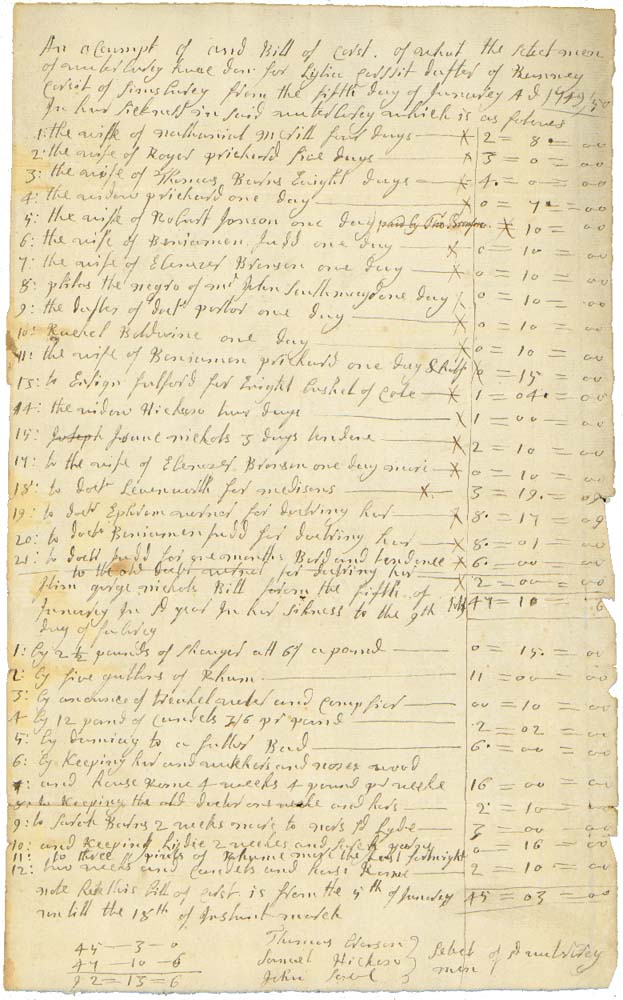 An acompt of and Bill of Cost. of what the select men
of waterbury have don for Lydia Cossit dafter of Ranney
Cosist of Simsbury from the fifth day of Janurey A D 1749/50
In her Sickness in said waterbury which is as folows
1: the wife of nathaniel merill four days — x 2 = 8 = 00
2: the wife of Roger prichard five days x 3 = 0 = 00
3: the wife of Thomas Barns Eaight days — x 4 = 0 = 00
4: the widow prichard one day — x 0 = 7 = 00
5: the wife of Robart Jonson one day paid by Tho Bronson x 10 = 00
6: the wife of Beniamen Judd one day x 0 = 10 = 00
7: the wife of Ebenezer Bronson one day — x 0 = 10 = 00
8: the negro of mr John Southmayd one day 0 = 10 = 00
9: the dafter of doct portor one day 0 = 10 = 00
10: Rachel Baldwine one day — x 0 = 10 = 00
11: the wife of Beniamen prichard one day & half 0 = 15 = 00
13: to Ensign fulford for Eaight bushel of Cole — x 1 = 04 = 00
14: the widow Hickcox two days — x 1 = 00 = 00
15: Joseph nichols 5 days tendene — x 2 = 10 = 00
17: to the wife of Ebenezer Bronson one day more — x 0 = 10 = 00
18: to doct Levenworth for medisens — x. 3 = 19 = 09
19: to doct Ephrem warner for doctring her — x 8 = 17 = 09
20: to doct Beniamen Judd for doctring her — x 8 = 01 = 00
21: to doct Judd for one month Bord and tendence x 6 = 00 = 00
to the old doct warner for doctring her — x 2 = 00 = 00
Item gorge nichols Bill from the fifth of 47 = 10 = 6
Janurey In sd year In her sikness to the 9th
day of febrey
1: by 2 1/2 pounds of shuger att 6/ a pound — 0 = 15 = 00
2: by five guthrs of Rhum — 11 = 00 = 00
3: by anounce of treakel water and Campfier — 00 = 10 = 00
4 by 12 pound of Candels 3/6 pr pound — 2 = 02 = 00
5: by damieg to a father Bad — 6 = 00 = 00
6: by Keeping her and watchers and norses wood
and house Rome 4 weeks 4 pound pr weeke 16 = 00 = 00
8: to Keeping the old docter one weeke and hors — 2 = 10 =
9: to Sarah Barns 2 weeks more to nors sd Lyde — 3 = 00 = 00
10: and Keeping Lydie 2 weekes and 0 = 16 = 00
11: to three pints of Rhume more the Last fortnight
12: two weeks and Candels and house Rome 2 = 10 = 00
note Rethis bill of cost is from the 5th of Janurey 45 = 03 = 00
untill the 18th of Instant march
45 — 3 — 0 Thomas Bronson
47 — 10 — 6 Samuel Hickcox Select of sd waterbury
92 = 13 = 6 John men